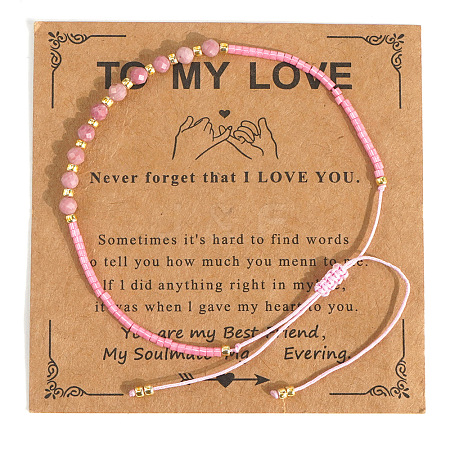 TO MY LOVE
Never forget that I LOVE YOU.
Sometimes it's hard to find words
to tell you how much you menn to me.
If I did anything right in my life,
it was when I gave my heart to you.
You are my Best Friend,
My Soulmate, Evering.